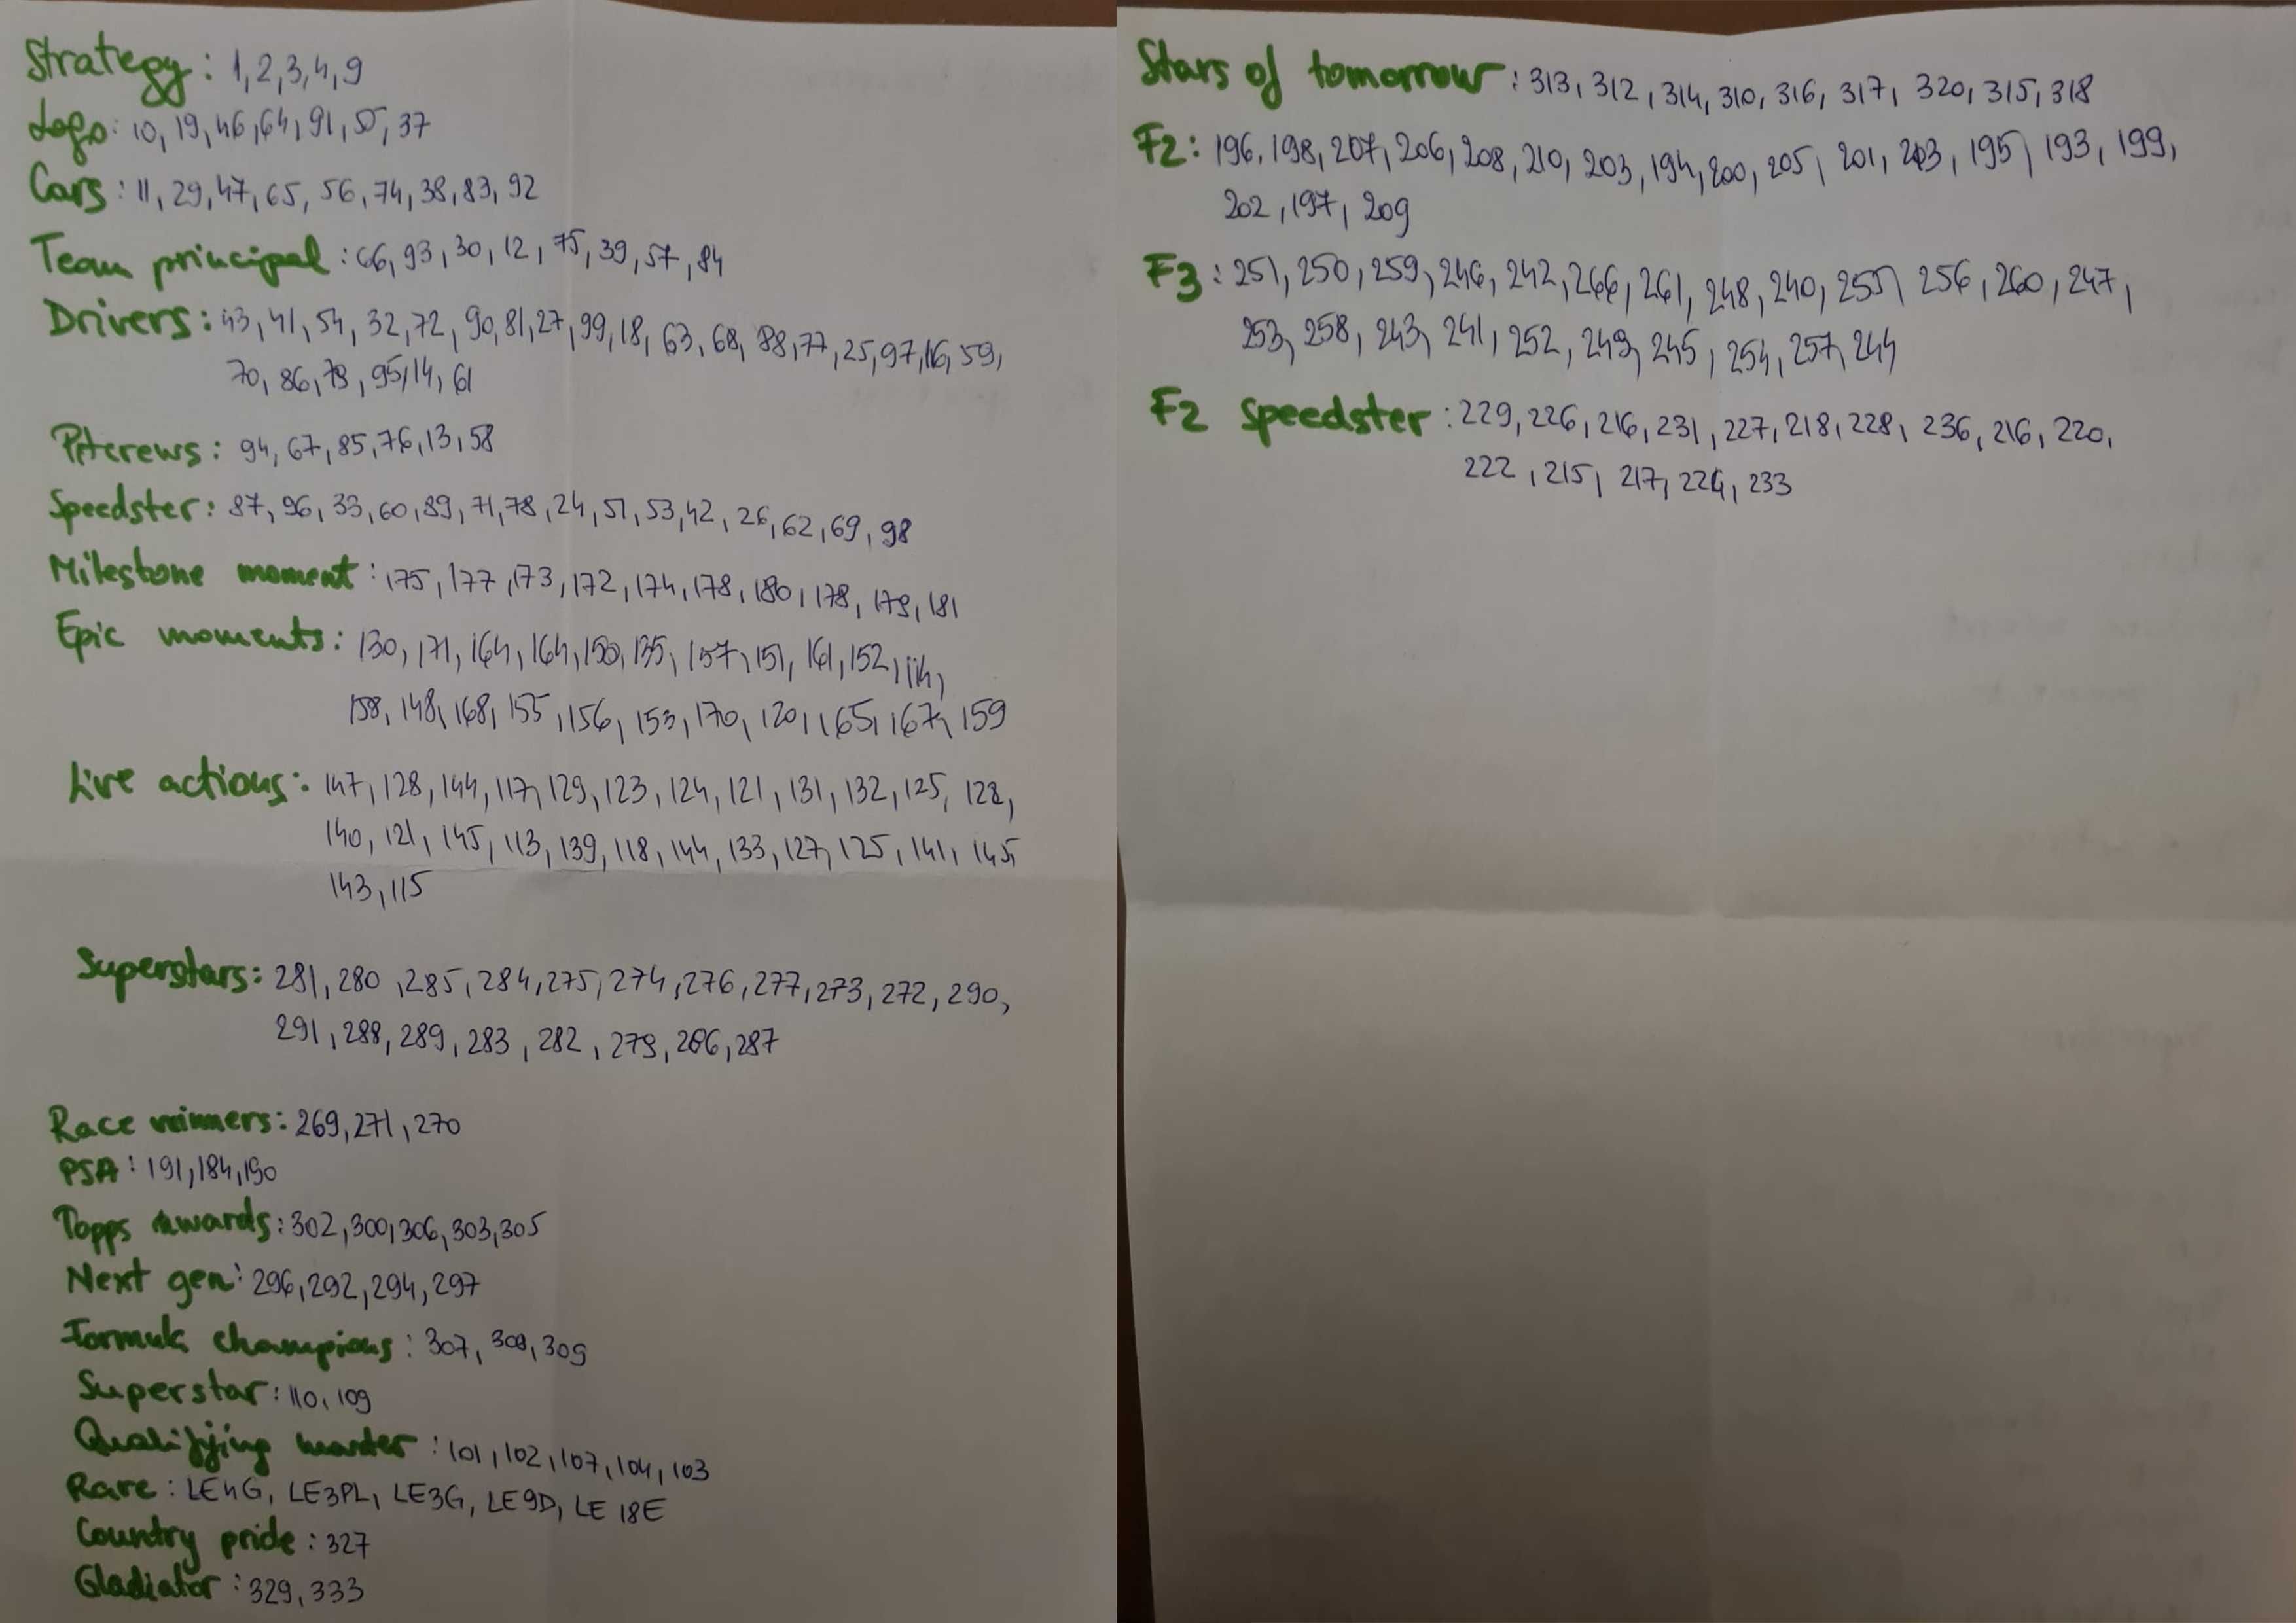 Strategy: 1,2,3,4,9
Logo: 10,19,46,64,91,55,37
Cars: 11,29,47,65,56,74,38,83,92
Team principal: 66,93,30,12,75,39,57,84
Drivers: 43,41,54,32,72,90,81,27,99,18,63,68,88,77,25,97,16,59,
70,86,79,95,14,61
Pitcrews: 94,67,85,76,13,58
Speedster: 87,96,33,60,89,71,78,24,51,53,42,26,62,69,98
Milestone moment: 175,177,173,172,174,178,180,178,179,181
Epic moments: 130,171,164,164,150,135,157,151,161,152,114,
158,148,168,155,156,153,170,120,165,167,159
Live actions: 147,128,144,117,129,123,124,121,131,132,125,128,
140,121,145,113,139,118,144,133,127,125,141,145
143,115
Superstars: 281,280,285,284,275,274,276,277,273,272,290,
291,288,289,283,282,279,286,287
Race winners: 269,271,270
PSA: 191,184,190
Topps awards: 302,300,306,303,305
Next gen: 296,292,294,297
Formula champions: 307,308,309
Superstar: 110,109
Qualifying master: 101,102,107,104,103
Rare: LE4G, LE3PL, LE3G, LE9D, LE 18E
Country pride: 327
Gladiator: 329,333
Stars of tomorrow: 313,312,314,310,316,317,320,315,318
F2: 196,198,207,206,208,210,203,194,200,205,201,203,195,193,199,
202,197,209
F3: 251,250,259,246,242,266,261,248,240,255,256,260,247,
253,258,243,241,252,249,245,254,257,244
F2 Speedster: 229,226,216,231,227,218,228,236,216,220,
222,215,217,224,233